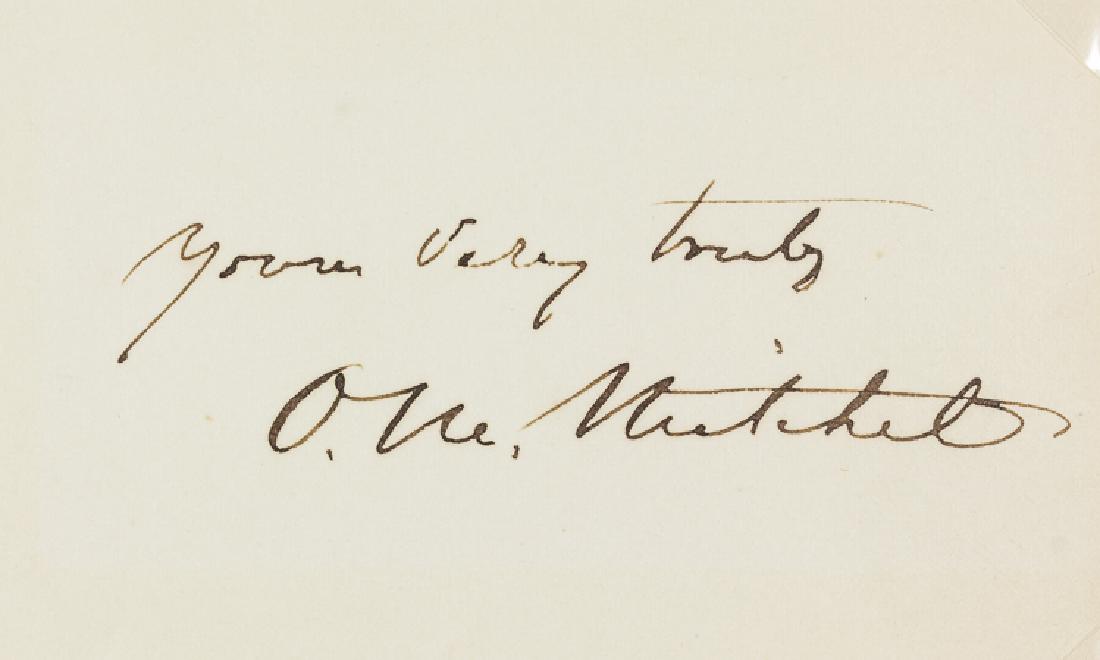 Yours very truly
O. M. Mitchel